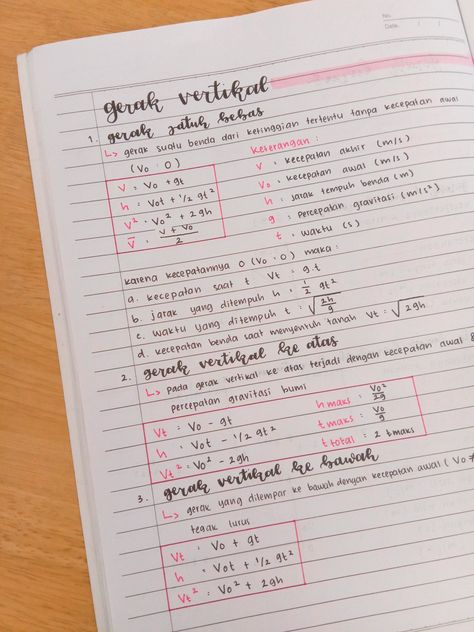 No.
Date
gerak vertikal
1. gerak jatuh bebas
↳ gerak suatu benda dari ketinggian tertentu tanpa kecepatan awal
(Vo : 0)
V = Vo + gt
h = Vot + 1/2 gt²
V² = Vo² + 2gh
V̄ = V + Vo / 2
Keterangan :
V : kecepatan akhir (m/s)
Vo : kecepatan awal (m/s)
h : jarak tempuh benda (m)
g : percepatan gravitasi (m/s²)
t : waktu (s)
karena kecepatannya 0 (Vo : 0) maka :
a. kecepatan saat t Vt = g.t
b. jarak yang ditempuh h = 1/2 gt²
c. waktu yang ditempuh t = √2h/g
d. kecepatan benda saat menyentuh tanah Vt = √2gh
2. gerak vertikal ke atas
↳ pada gerak vertikal ke atas terjadi dengan kecepatan awal &
percepatan gravitasi bumi
Vt = Vo - gt
h = Vot - 1/2 gt²
Vt² = Vo² - 2gh
h maks = Vo²/2g
t maks = Vo/g
t total = 2 tmaks
3. gerak vertikal ke bawah
↳ gerak yang dilempar ke bawah dengan kecepatan awal (Vo ≠
tegak lurus
Vt = Vo + gt
h = Vot + 1/2 gt²
Vt² = Vo² + 2gh